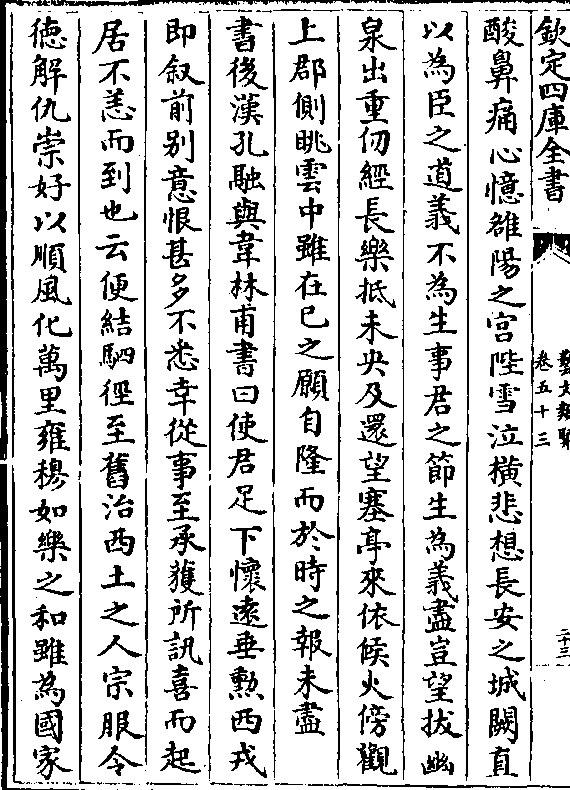 欽定四庫全書
藝文類聚
卷五十三
二十三
酸鼻痛心憶雒陽之宮陛雪泣横悲想長安之城闕直
以為臣之道義不為生事君之節生為義盡豈望拔幽
泉出重仞經長樂抵未央及還望塞亭來依候火傍觀
上郡側眺雲中雖在已之願自隆而於時之報未盡
書後漢孔融與韋林甫書曰使君足下懷逺垂勲西戎
即叙前别意恨甚多不悉幸從事至承獲所訊喜而起
居不恙而到也云便結駟徑至舊治西土之人宗服令
徳解仇崇好以順風化萬里雍穆如樂之和雖為國家